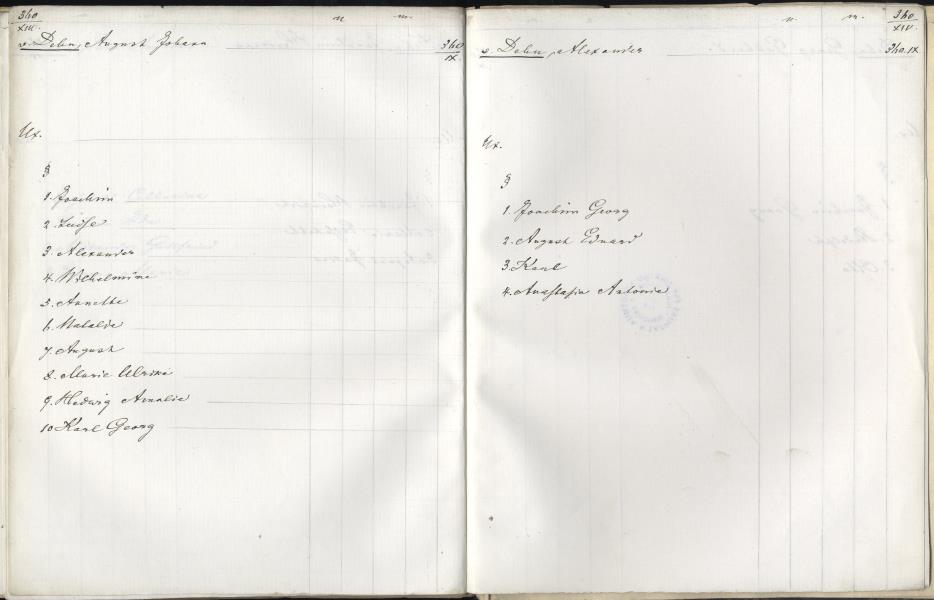 360
XIII.
n
m.
v. Dehn, August Johann
360
IX.
Ux.
§
1. Joachim
2. Luise
3. Alexander
4. Wilhelmine
5. Annette
6. Natalie
7. August
8. Marie Ulrike
9. Hedwig Amalie
10 Karl Georg
n.
m.
360
XIV.
v. Dehn, Alexander
360.IX
Ux.
§
1. Joachim Georg
2. August Eduard
3. Karl
4. Anastasia Antonie